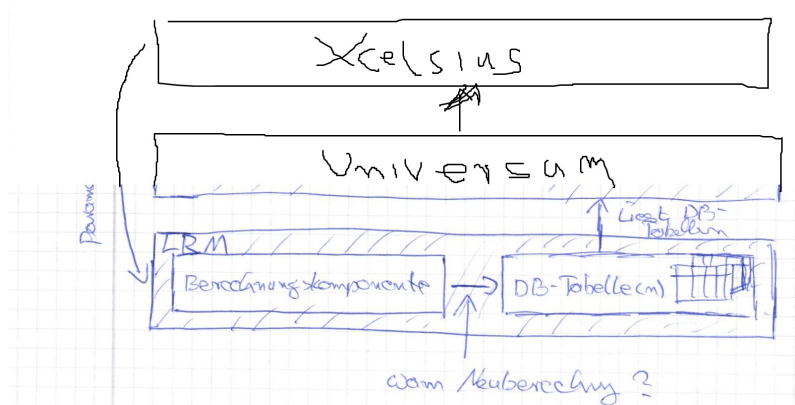 Xcelsius
Universum
Params
Liest DB-
Tabellen
LRM
Berechnungskomponente
DB-Tabelle(n)
wann Neuberechnung ?